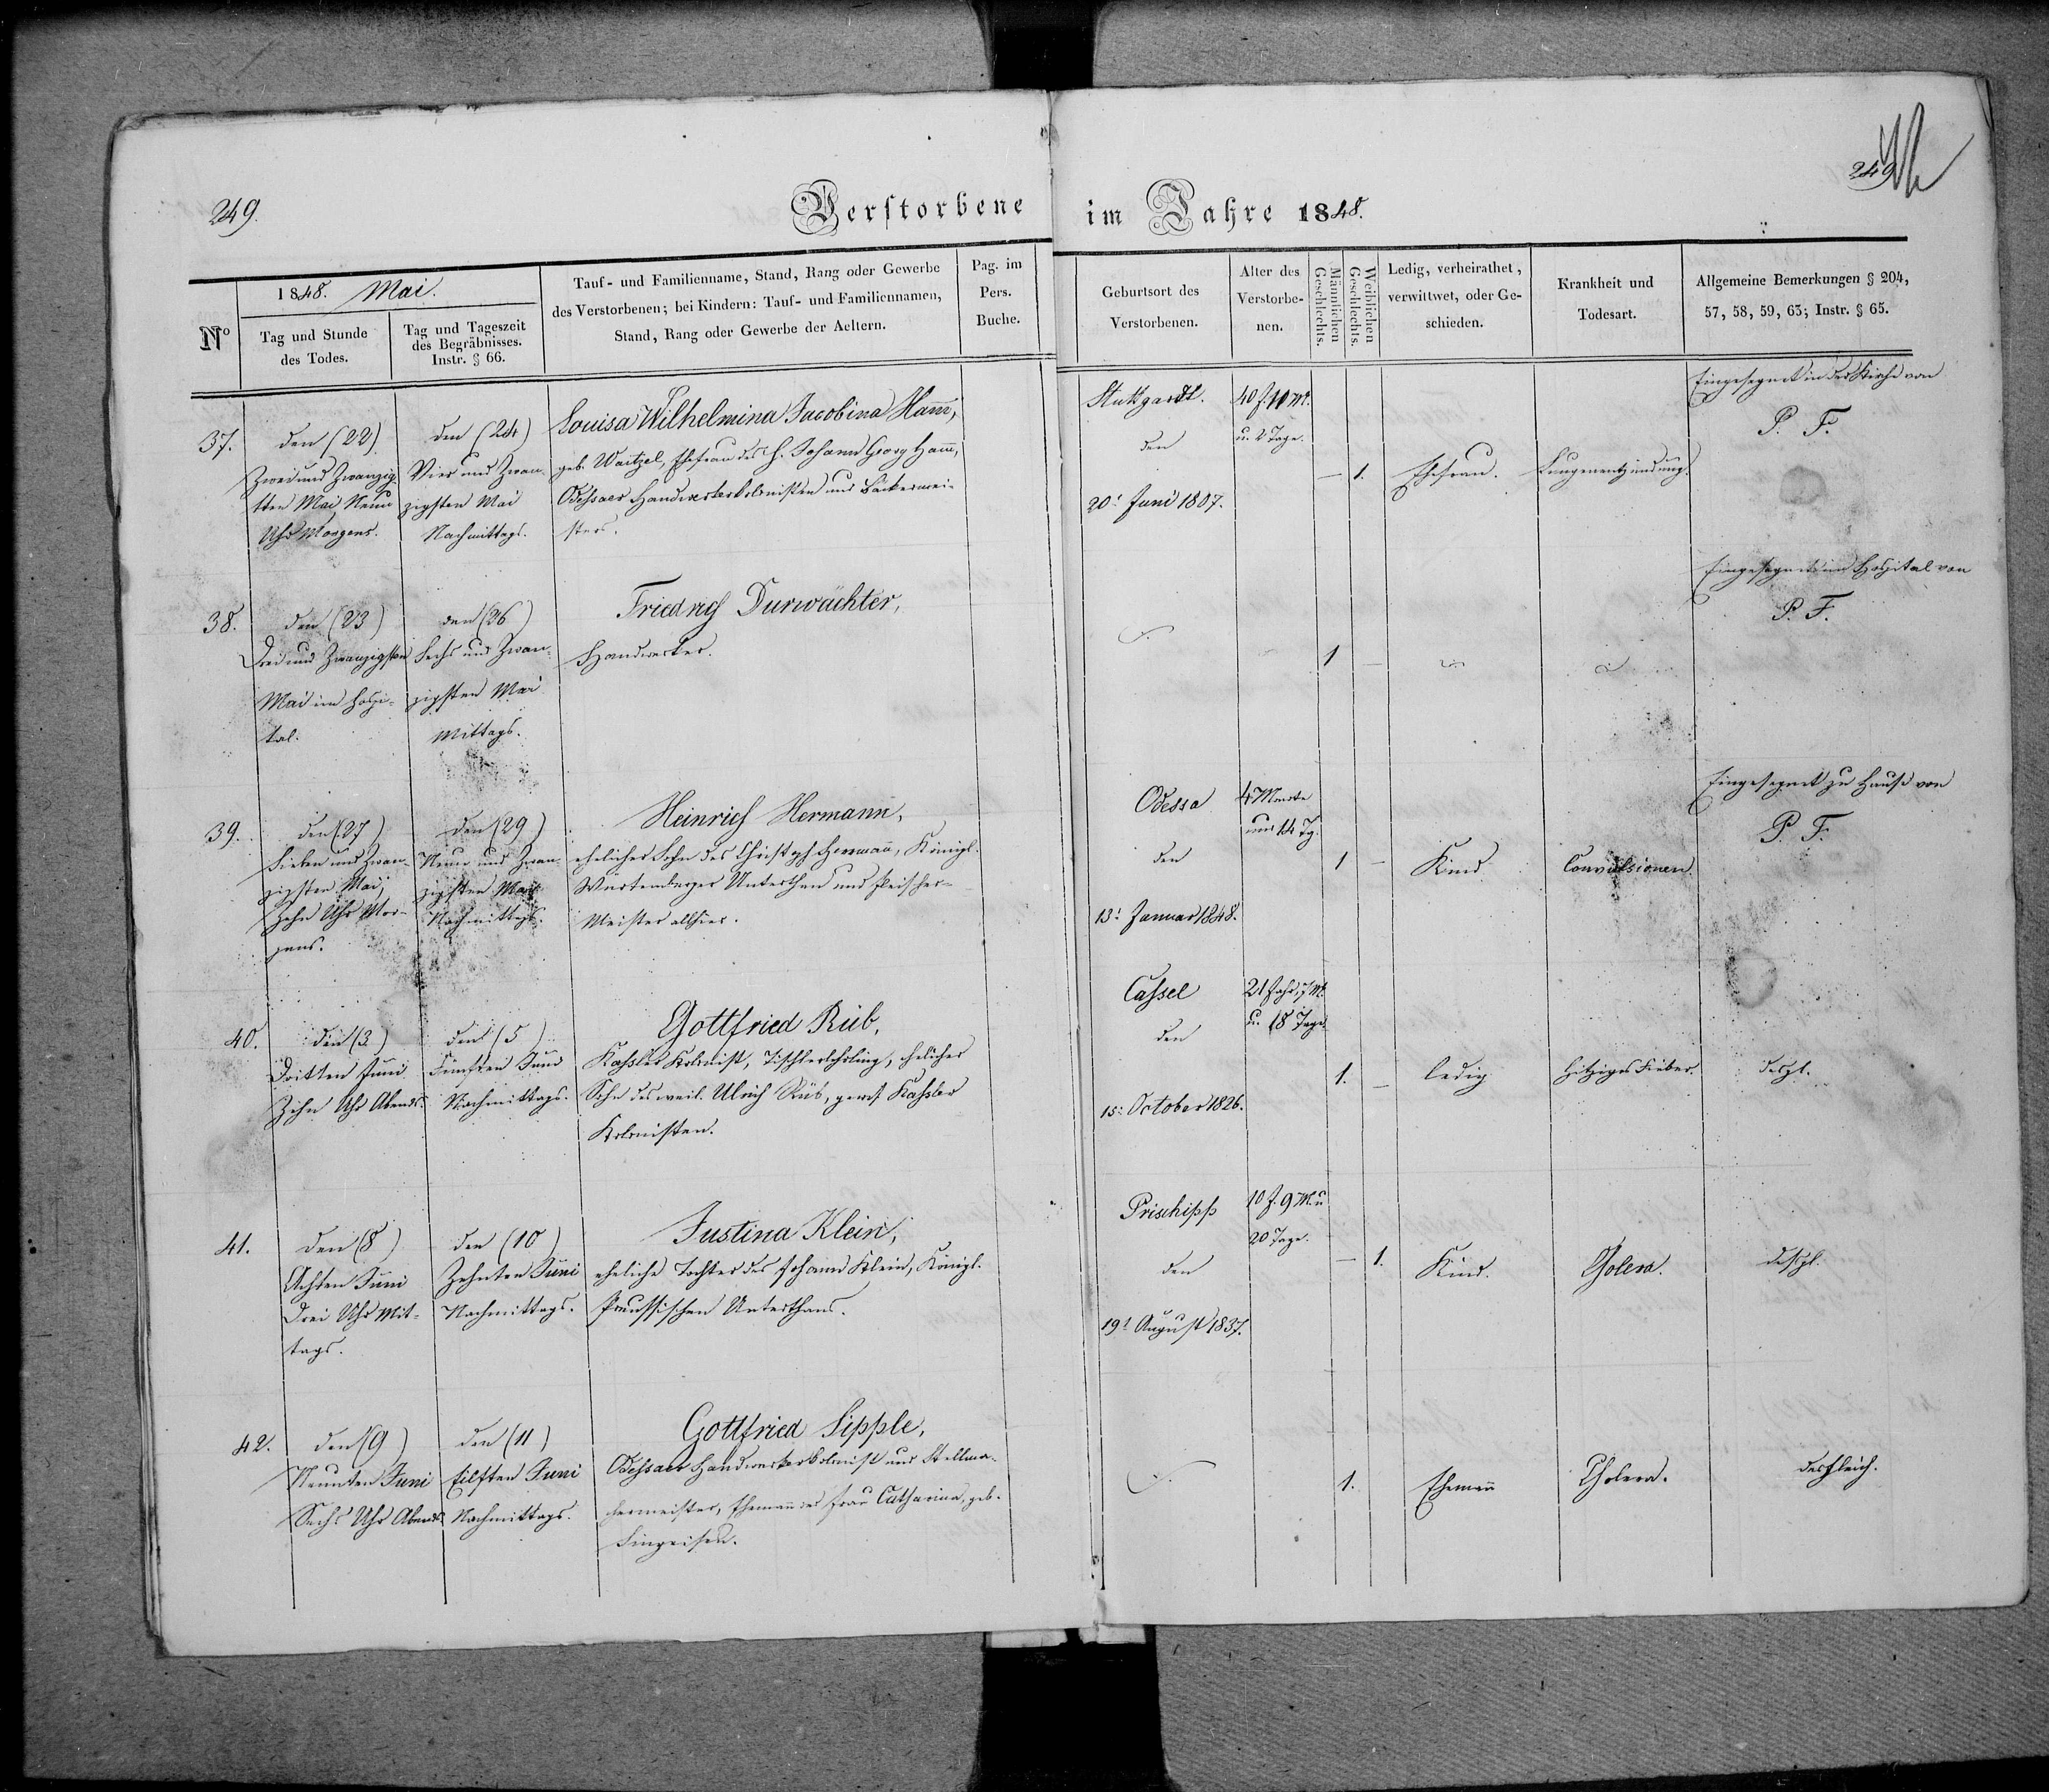 249.
Verstorbene im Jahre 1848.
249
No
1848. Mai.
Tag und Stunde
des Todes.
Tag und Tageszeit
des Begräbnisses.
Instr. § 66.
Tauf- und Familienname, Stand, Rang oder Gewerbe
des Verstorbenen; bei Kindern: Tauf- und Familiennamen,
Stand, Rang oder Gewerbe der Aeltern.
Pag. im
Pers.
Buche.
Geburtsort des
Verstorbenen.
Alter des
Verstorbe-
nen.
Männlichen
Geschlechts.
Weiblichen
Geschlechts.
Ledig, verheirathet,
verwittwet, oder Ge-
schieden.
Krankheit und
Todesart.
Allgemeine Bemerkungen § 204,
57, 58, 59, 63; Instr. § 65.
37.
den (22)
Zwei und Zwanzig-
sten Mai Neun
Uhr Morgens.
den (24)
Vier und Zwan-
zigsten Mai
Nachmittags.
Louisa Wilhelmina Jacobina Ham̄,
geb. Waitzel, Ehefrau des H. Johann Georg Ham̄,
Odessaer Handwerkerkolonisten und Bäckermei-
sters.
Stuttgardt.
den
20t Juni 1807.
40 J. 10 M.
u. 2 Tage.
— 1.
Ehefrau.
Lungenentzündung.
Eingesegnet in der Kirche von
P. F.
38.
den (23)
Drei und Zwanzigsten
Mai im Hospi-
tal.
den (26)
Sechs und Zwan-
zigsten Mai
Mittags.
Friedrich Durwächter,
Handwerker.
1 —
Eingesegnet im Hospital von
P. F.
39.
den (27)
Sieben und Zwan-
zigsten Mai,
Zehn Uhr Mor-
gens.
den (29)
Neun und Zwan-
zigsten Mai
Nachmittags.
Heinrich Hermann,
ehelicher Sohn des Christoph Herrmañ, Königl.
Würtemberger Unterthan und Fleischer-
Meister allhier.
Odessa
den
13t Januar 1848.
4 Monate
und 14 Tg.
1 —
Kind
Convulsionen.
Eingesegnet zu Hause von
P. F.
40.
den (3)
Dritten Juni
Zehn Uhr Abends.
den (5)
Fünften Juni
Nachmittags.
Gottfried Rüb,
Kassler Kolonist, Tischlerlehrling, ehelicher
Sohn des weil. Ulrich Rüb, gewes. Kassler
Kolonisten.
Cassel
den
15t October 1826.
21 Jahr, 7 M.
u. 18 Tage.
1. —
ledig
Hitziges Fieber.
desgl.
41.
den (8)
Achten Juni
Drei Uhr Mit-
tags.
den (10)
Zehnten Juni
Nachmittags.
Justina Klein,
eheliche Tochter des Johann Klein, Königl.
Preussischen Unterthans.
Prischipp
den
19t August 1837.
10 J. 9 M. u
20 Tage.
— 1.
Kind.
Colera.
desgl.
42.
den (9)
Neunten Juni
Sechs Uhr Abends
den (11)
Eilften Juni
Nachmittags.
Gottfried Sipple,
Odessaer Handwerkerkolonist und Stellma-
chermeister, Ehemañ der Frau Catharina, geb.
1.
Ehemañ
Cholera.
desgleich.